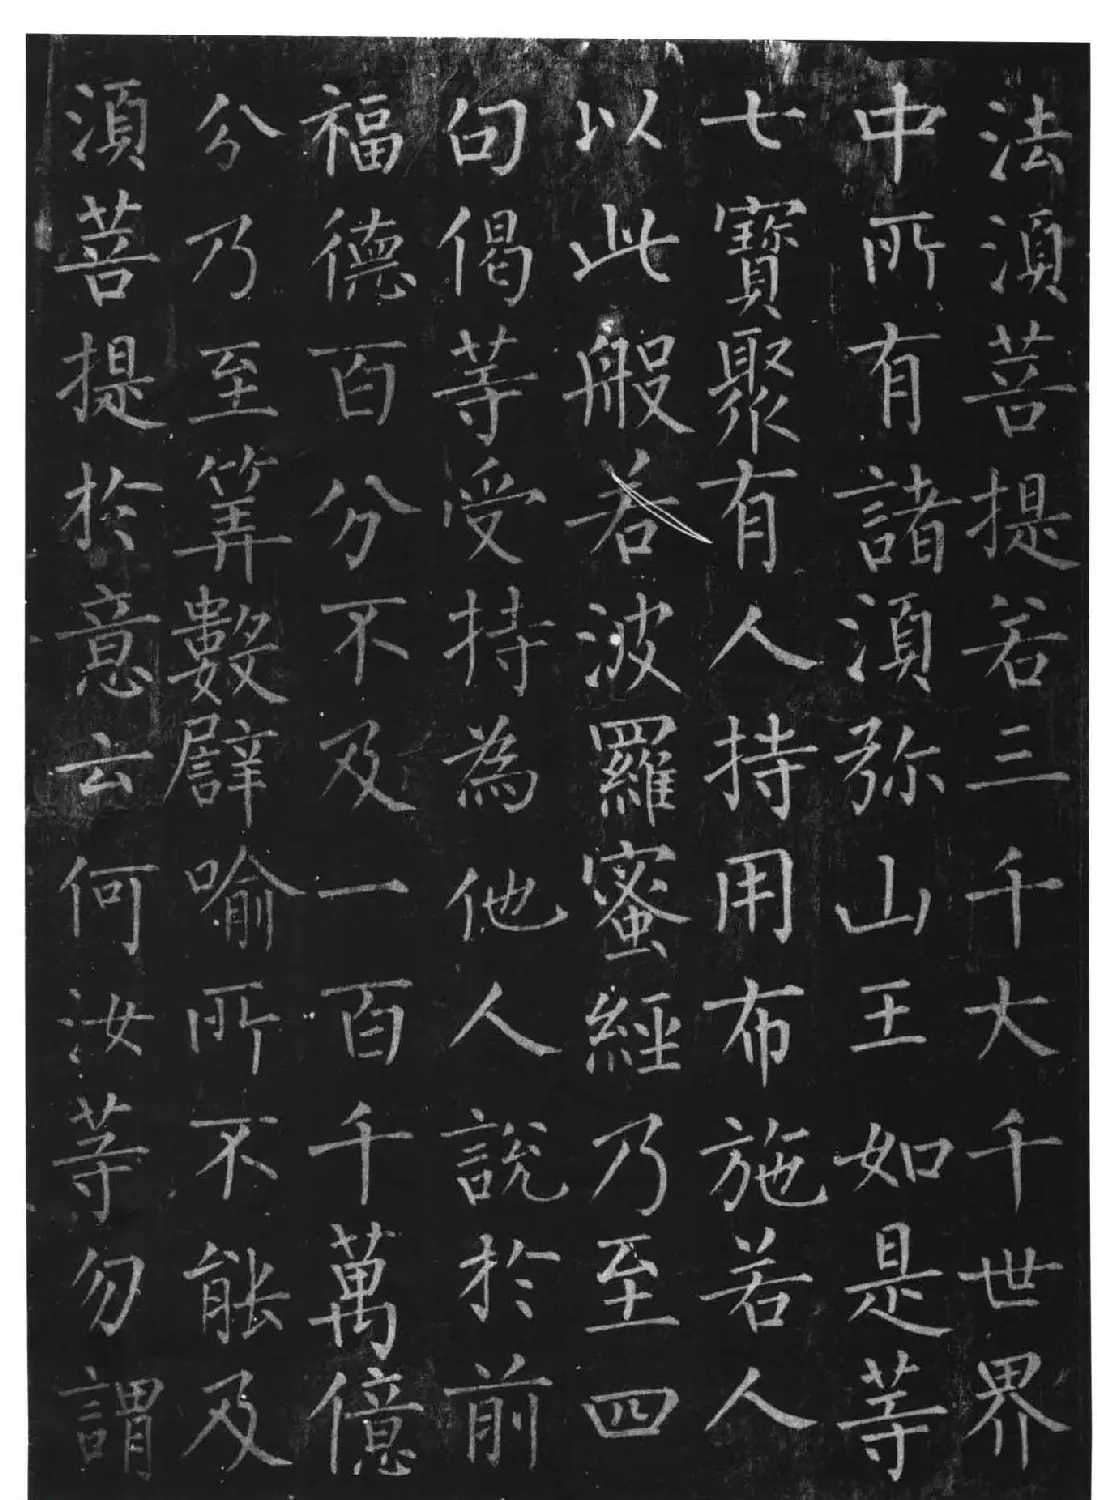 法須菩提若三千大千世界
中所有諸須弥山王如是等
七寶聚有人持用布施若人
以此般若波羅蜜經乃至四
句偈等受持為他人說於前
福德百分不及一百千萬億
分乃至筭數譬喻所不能及
須菩提於意云何汝等勿謂